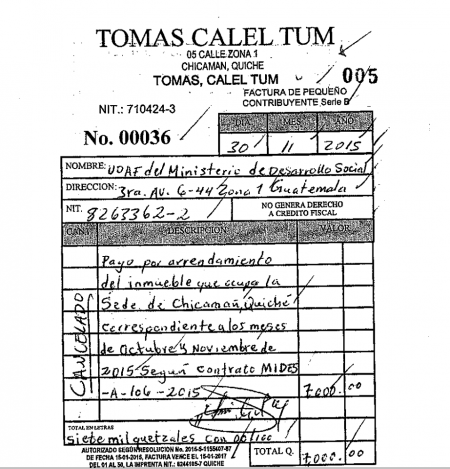 TOMAS CALEL TUM
05 CALLE ZONA 1
CHICAMAN, QUICHE
TOMAS, CALEL TUM
005
FACTURA DE PEQUEÑO
CONTRIBUYENTE Serie B
NIT.: 710424-3
No. 00036
DIA MES AÑO
30 11 2015
NOMBRE: UDAF del Ministerio de Desarrollo Social
DIRECCION: 3ra. Av. 6-44 Zona 1 Guatemala
NIT. 8263362-2
NO GENERA DERECHO
A CREDITO FISCAL
CAN. DESCRIPCION VALOR
Pago por arrendamiento
del inmueble que ocupa la
Sede de Chicamán, Quiché
correspondiente a los meses
de Octubre y Noviembre de
2015 Según contrato MIDES
-A-106-2015
7000.00
CANCELADO
TOTAL EN LETRAS
siete mil quetzales con
AUTORIZADO SEGÚN RESOLUCIÓN No. 2015-5-1155407-87
DE FECHA 15-01-2015, FACTURA VENCE EL 15-01-2017
DEL 01 AL 50, LA IMPRENTA NIT.: 8244105-7 QUICHE
TOTAL Q. 7000.00